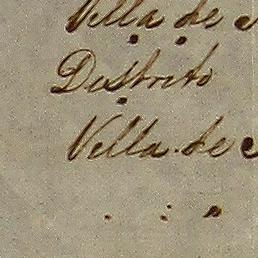 Villa de
Destrito
Villa de